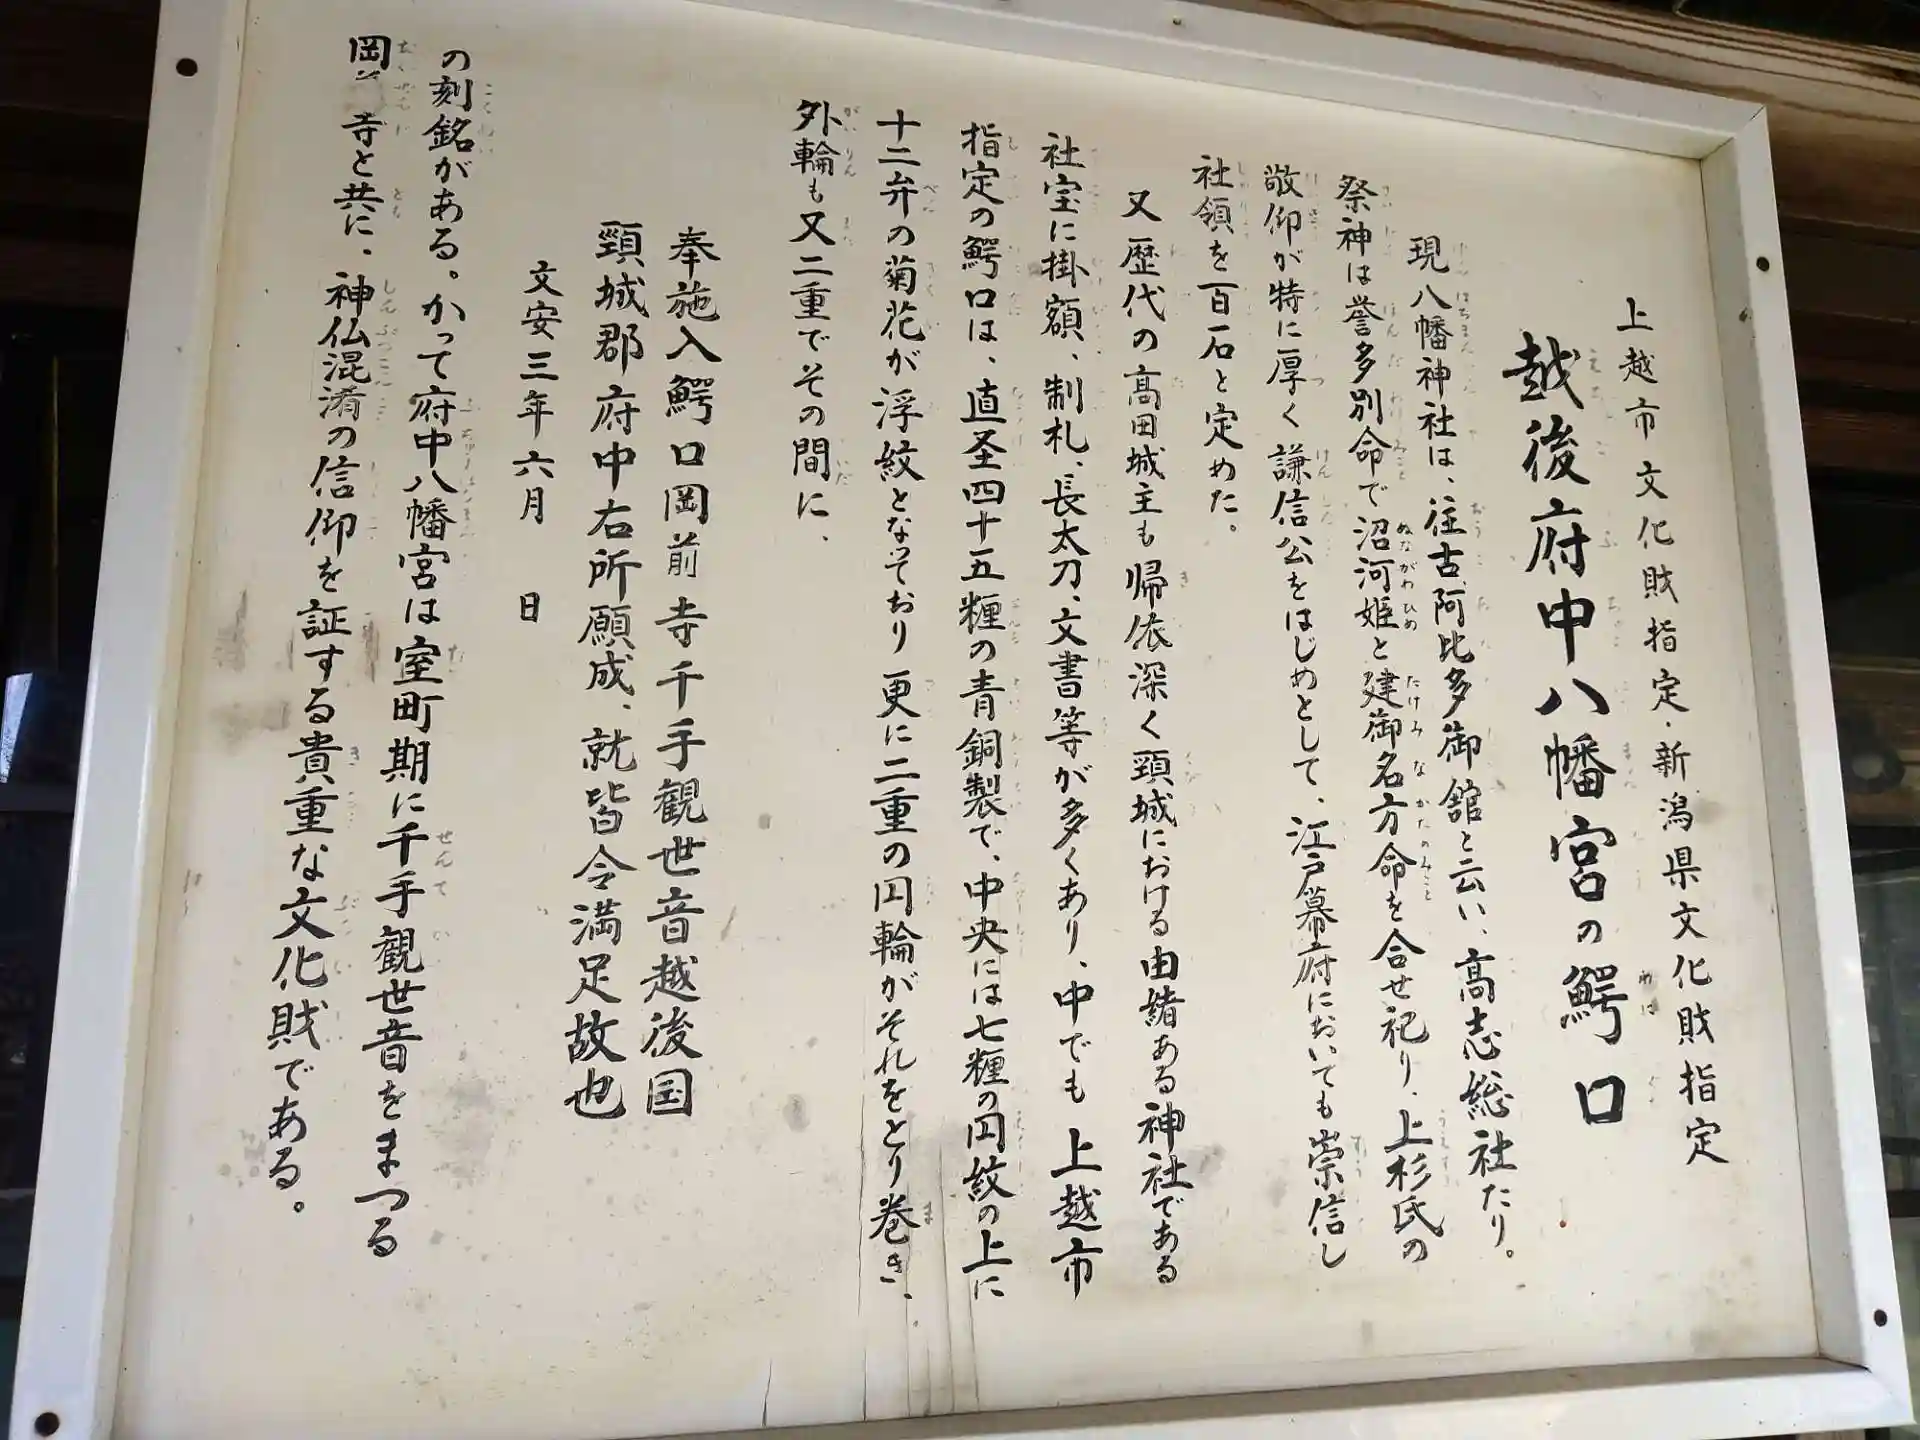 上越市文化財指定・新潟県文化財指定
越後府中八幡宮の鰐口
現八幡神社は、往古、阿比多御舘と云い、高志総社たり。
祭神は誉多別命で沼河姫と建御名方命を合せ祀り、上杉氏の
敬仰が特に厚く謙信公をはじめとして、江戸幕府においても崇信し
社領を百石と定めた。
又歴代の高田城主も帰依深く頸城における由緒ある神社である
社宝に掛額、制札、長太刀、文書等が多くあり、中でも上越市
指定の鰐口は、直圣四十五糎の青銅製で、中央には七糎の円紋の上に
十二弁の菊花が浮紋となっており更に二重の円輪がそれをとり巻き、
外輪も又二重でその間に、
奉施入鰐口岡前寺千手観世音越後国
頸城郡府中右所願成、就皆令満足故也
文安三年六月 日
の刻銘がある。かって府中八幡宮は室町期に千手観世音をまつる
岡 寺と共に、神仏混淆の信仰を証する貴重な文化財である。